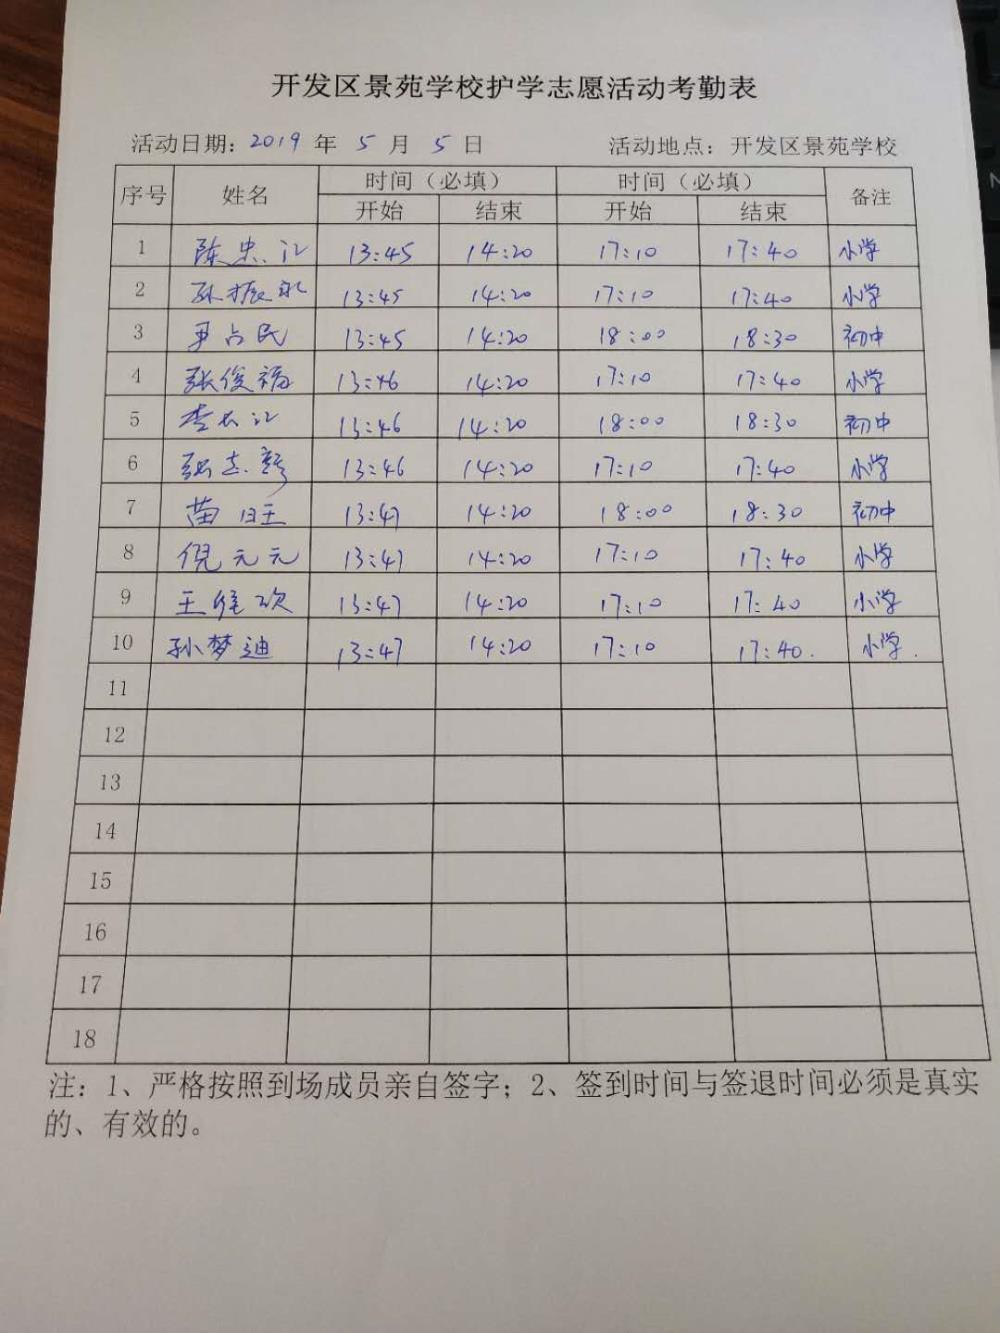 开发区景苑学校护学志愿活动考勤表
活动日期：2019 年 5 月 5 日 活动地点：开发区景苑学校
序号 姓名 时间（必填） 时间（必填） 备注
开始 结束 开始 结束
1 陈忠江 13:45 14:20 17:10 17:40 小学
2 孙振永 13:45 14:20 17:10 17:40 小学
3 尹占民 13:45 14:20 18:00 18:30 初中
4 张俊福 13:46 14:20 17:10 17:40 小学
5 李长江 13:46 14:20 18:00 18:30 初中
6 张志 13:46 14:20 17:10 17:40 小学
7 苗旺 13:47 14:20 18:00 18:30 初中
8 倪元元 13:47 14:20 17:10 17:40 小学
9 王 13:47 14:20 17:10 17:40 小学
10 孙梦迪 13:47 14:20 17:10 17:40. 小学.
11
12
13
14
15
16
17
18
注：1、严格按照到场成员亲自签字；2、签到时间与签退时间必须是真实
的、有效的。